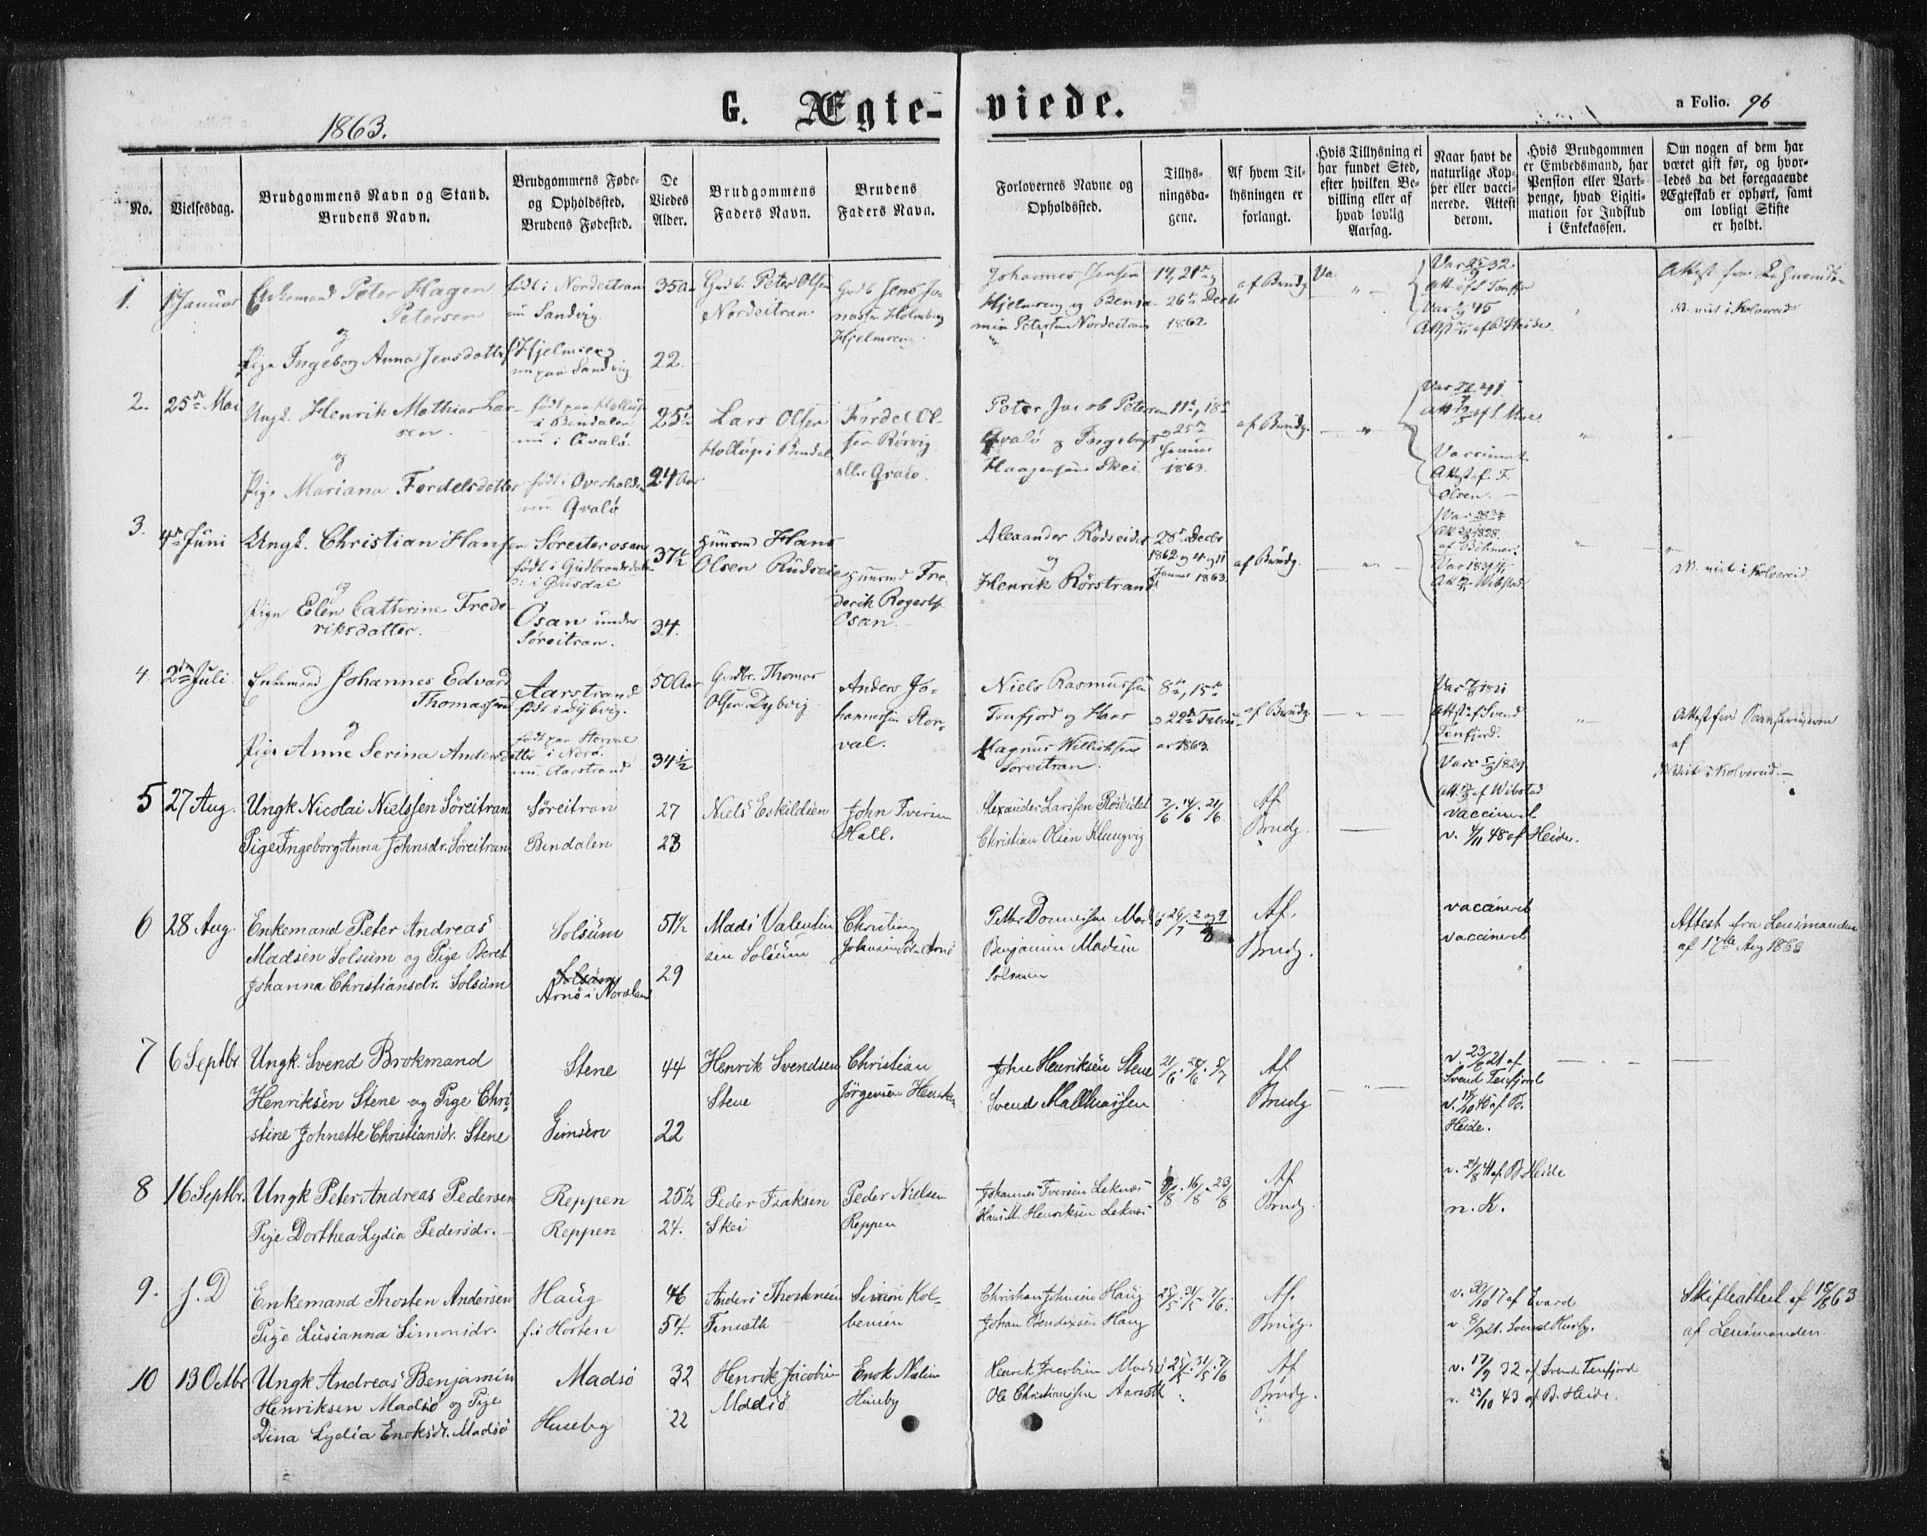 1863.
G. Ægte-viede.
a Folio. 96
No.
Vielsesdag.
Brudgommens Navn og Stand.
Brudens Navn.
Brudgommens Føde-
og Opholdssted.
Brudens Fødested.
De
Viedes
Alder.
Brudgommens
Faders Navn.
Brudens
Faders Navn.
Forlovernes Navne og
Opholdssted.
Tillys-
ningsda-
gene.
Af hvem Til-
lysningen er
forlangt.
Hvis Tillysning ei
har fundet Sted,
efter hvilken Be-
villing eller af
hvad lovlig
Aarsag.
Naar havt de
naturlige Kop-
per eller vacci-
nerede. Attest
derom.
Hvis Brudgommen
er Embedsmand, har
Pension eller Vart-
penge, hvad Ligiti-
mation for Indskud
i Enkekassen.
Om nogen af dem har
været gift før, og hvor-
ledes da det foregaaende
Ægteskab er ophørt, samt
om lovligt Skifte
er holdt.
1. 1 Januar
Enkemand Peter Hagen
Petersen
og
Pige Ingeborg Anna Jensdatter
født i Nordeitran
nu Sandvig
Hjelmseng
nu paa Sandvig
35 Aar
22.
Gbd. Peter Olsen
Nordeitran
Hjelmseng
Johannes Jensen
Hjelmseng og Benja-
min Petersen Nordeitran
14, 21de og
26de Decbr
1862
af Brudg.
Att. af S. Tenfjor
Attst af B Heide
viist i Kolvereid
2. 25de Mai
Ungk. Henrik Mathias Lar-
sen
og
Pige Mariana Fordelsdatter
i Bendalen
nu i Qvalø
født i Overhalden
nu Qvalø
24 Aar
Lars Olsen
Holløp i Bendal
Fordel Ol-
sen Rørvig
eller Qvalø.
Peter Jacob Petersen
Qvalø og Ingebrigt
Haagensen Skei
11te, 18de
og 25de
Januar
1863.
af Brudg.
Vaccineret
Attest af F.
Olsen.
3. 4de Juni
Ungk. Christian Hansen
og
Pige Elen Cathrine Frede-
riksdatter.
Søreiterosen
født i Gudbrandsdalen
Osan under
Søreitran.
37½
34.
Huusmd Hans
Olsen Rudseie
Huusmd Fre-
derik Rogerts.
Osan.
Alexander Rødseidet
og
Henrik Rørstrand
28de Decbr
1862 og 4 og 11
Januar 1863.
af Brudg.
af Böhmer.
viist i Kolvereid
4. 2den Juli
Enkemand Johannes Edvard
Thomassen
og
Pige Anne Serina Andersdatter
Aarstrand
født i Dybvig.
født paa Storval
i Nærø
nu Aarstrand
50 Aar
34½
Gbdbr. Thomas
Olsen Dybvig
Anders Jo-
hannessen Stor-
val.
Niels Rasmussen
Tenfjord og Hans
Magnus Willichsen
Søreitran.
8de, 15de
og 22de Febru-
ar 1863.
af Brudg.
Attst af Svend
Tenfjord.
Att. af Wibstad
viist i Kolvereid.
5 27 Aug.
Ungk Nicolai Nielssen Søreitran
Pige Ingeborg Anna Johnsdr. Søreitran
Søreitran
Bindalen
27
23
Niels Eskildsen
John Iversen
Hall.
Alexander Larssen Rødseidet
Christian Olsen Klungvig
7/6. 14/6. 21/6.
Af
Brudg.
vaccineret
v. 4/11 48 af Heide.
6 28 Aug.
Enkemand Peter Andreas
Madsen Solsum og Pige Beret
Johanna Christiansdr. Solsum
Solsum
Arnø i Nordland
51½
29
Mads Valentin
sen Solsum
Christian
Benjamin Madsen
Solsum
26/7. 2 og 9/8
Af.
Brudg.
vaccineret
vaccineret
Attest fra Lensmanden
af 17de Aug 1863
7 6 Septbr
Ungk. Svend Brokmand
Henriksen Stene og Pige Chri-
stine Johnette Christiansdr. Stene
Stene
Gimsen
44
22
Henrik Svendsen
Stene
Christian
Jørgensen
John Henriksen Stene
Svend Mathiassen
21/6. 28/6. 5/7
Af
Brudg
v. 23/6 21 af
Svend Tenfjord
Heide.
8 16 Septbr.
Ungk Peter Andreas Pedersen
Pige Dorthea Lydia Pedersdr.
Reppen
Reppen
25½
24.
Peder Isaksen
Skei
Peder Nielsen
Reppen
Johannes Iversen Leknes
Hans M. Henriksen Leknes
9/8. 16/8. 23/8
Af
Brudg.
v. 21/8 41 af B Heide
n. K.
9. s. D
Enkemand Thosten Andersen
Pige Lusianna Simonsdr.
Haug
f. i Horten
46
54.
Anders Thostensen
Simon Kol-
bensen
Christian Johnsen Haug
Johan Bendixsen Haug
25/5. 31/5. 7/6.
Af.
Brudg.
v. 30/10 17 af Evard
v. 8/9 21. Svend Husby.
Skifteattest af 15/8 63
af Lensmanden
10 13 Octbr
Ungk Andreas Benjamin
Henriksen Madsø og Pige
Dina Lydia Enoksdr. Madsø
Madsø
Huseby
32
22
Henrik Jacobsen
Madsø
Enok Nielsen
Huseby
Henrik Jacobsen Madsø
Ole Christianssen
25/5. 31/5. 7/6
Af
Brudg.
v. 17/9 32 af Svend Tenfjord
v. 23/10 43 af B. Heide.